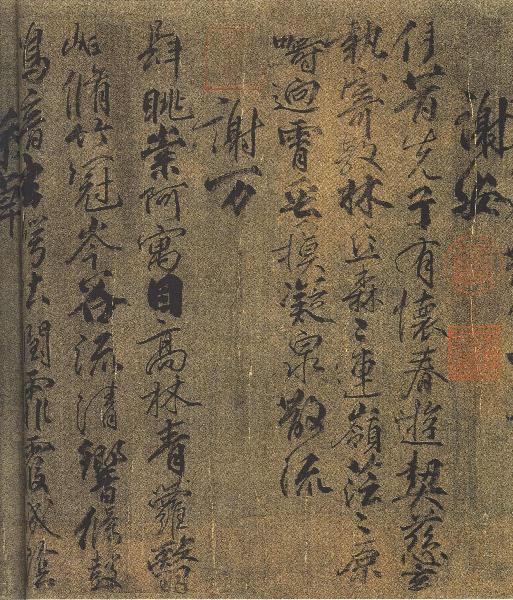 謝安
伊昔先子有懷春遊契茲言
執寄敖林丘森〻連嶺茫〻原
疇迥霄垂凝泉散流
謝万
肆眺崇阿寓目高林青蘿翳
岫脩竹冠岑谷流清響條鼓
鳴音玄崿吐潤霏霧成陰